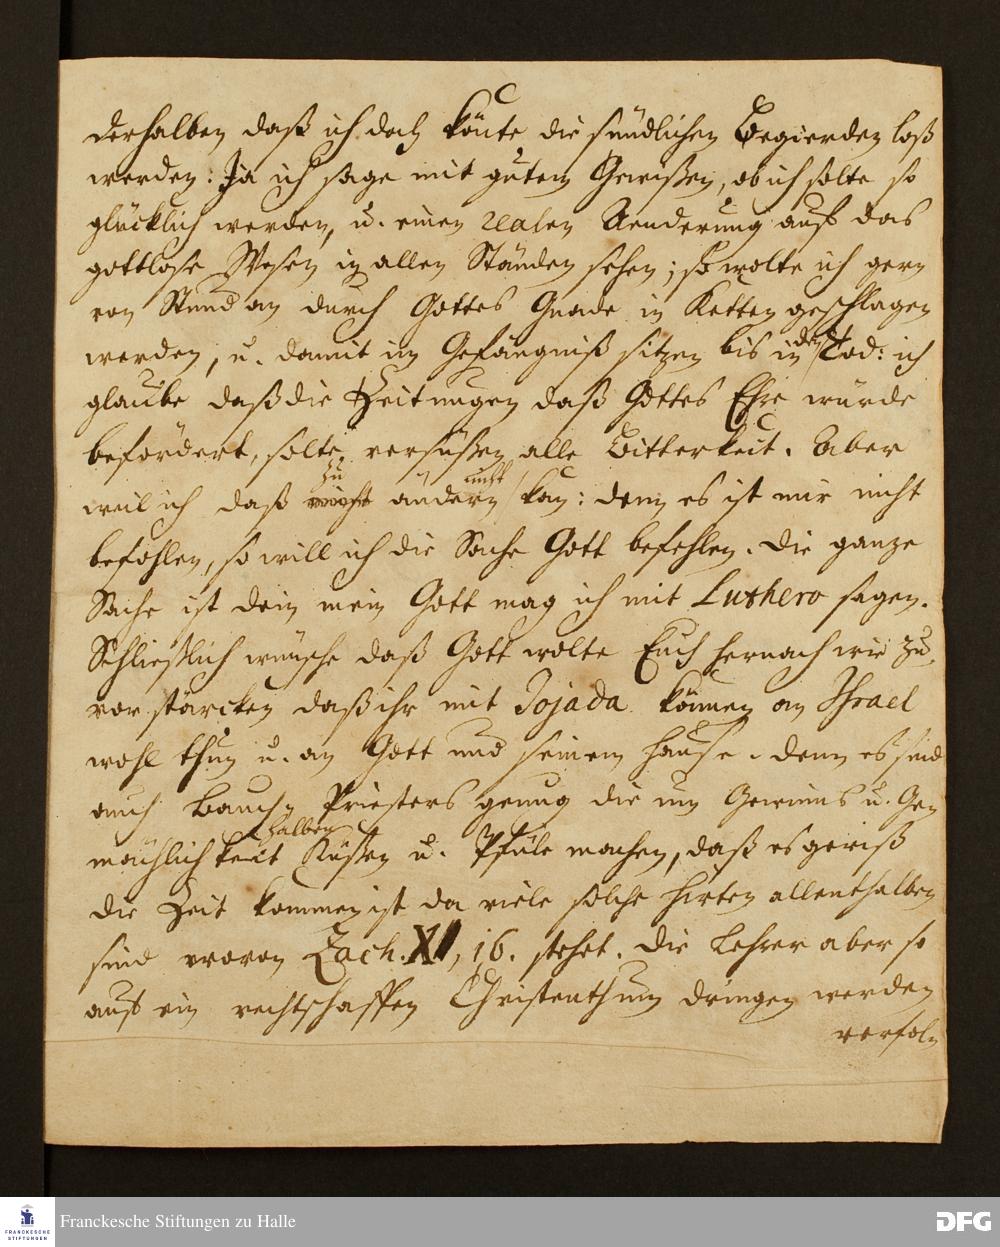 derhalben daß ich doch könte die sündlichen Begierden loß
werden: Ja ich sage mit gutem Gewißen, ob ich solte so
glücklich werden, u. einen realen Aenderung auf das
gottlose Wesen in allen Ständen sehen; so wolte ich gern
von Stund an durch Gottes Gnade in Ketten geschlagen
werden, u. damit im Gefängniß sitzen bis in den Tod: ich
glaube daß die Zeitungen daß Gottes Ehre würde
befördert, solte versüßen alle Bitterkeit. Aber
weil ich daß zu ändern nicht kan: denn es ist mir nicht
befohlen, so will ich die Sache Gott befehlen. Die ganze
Sache ist dein mein Gott mag ich mit Luthero sagen.
Schließlich wünsche daß Gott wolte Euch hernach wie zu
vor stärcken daß ihr mit Jojada können an Israel
wohl thun u. an Gott und seinem Hause. denn es sind
auch Bauch Priesters genug die um Gewinns u. Ge
mächlichkeit halben Küßen u. Pfüle machen, daß es gewiß
die Zeit kommen ist da viele solche Hirten allenthalben
sind wovon Zach. XI, 16. stehet. Die Lehrer aber so
auf ein rechtschaffen Christenthum dringen werden
verfol
Franckesche Stiftungen zu Halle
FRANCKESCHE
STIFTUNGEN
DFG